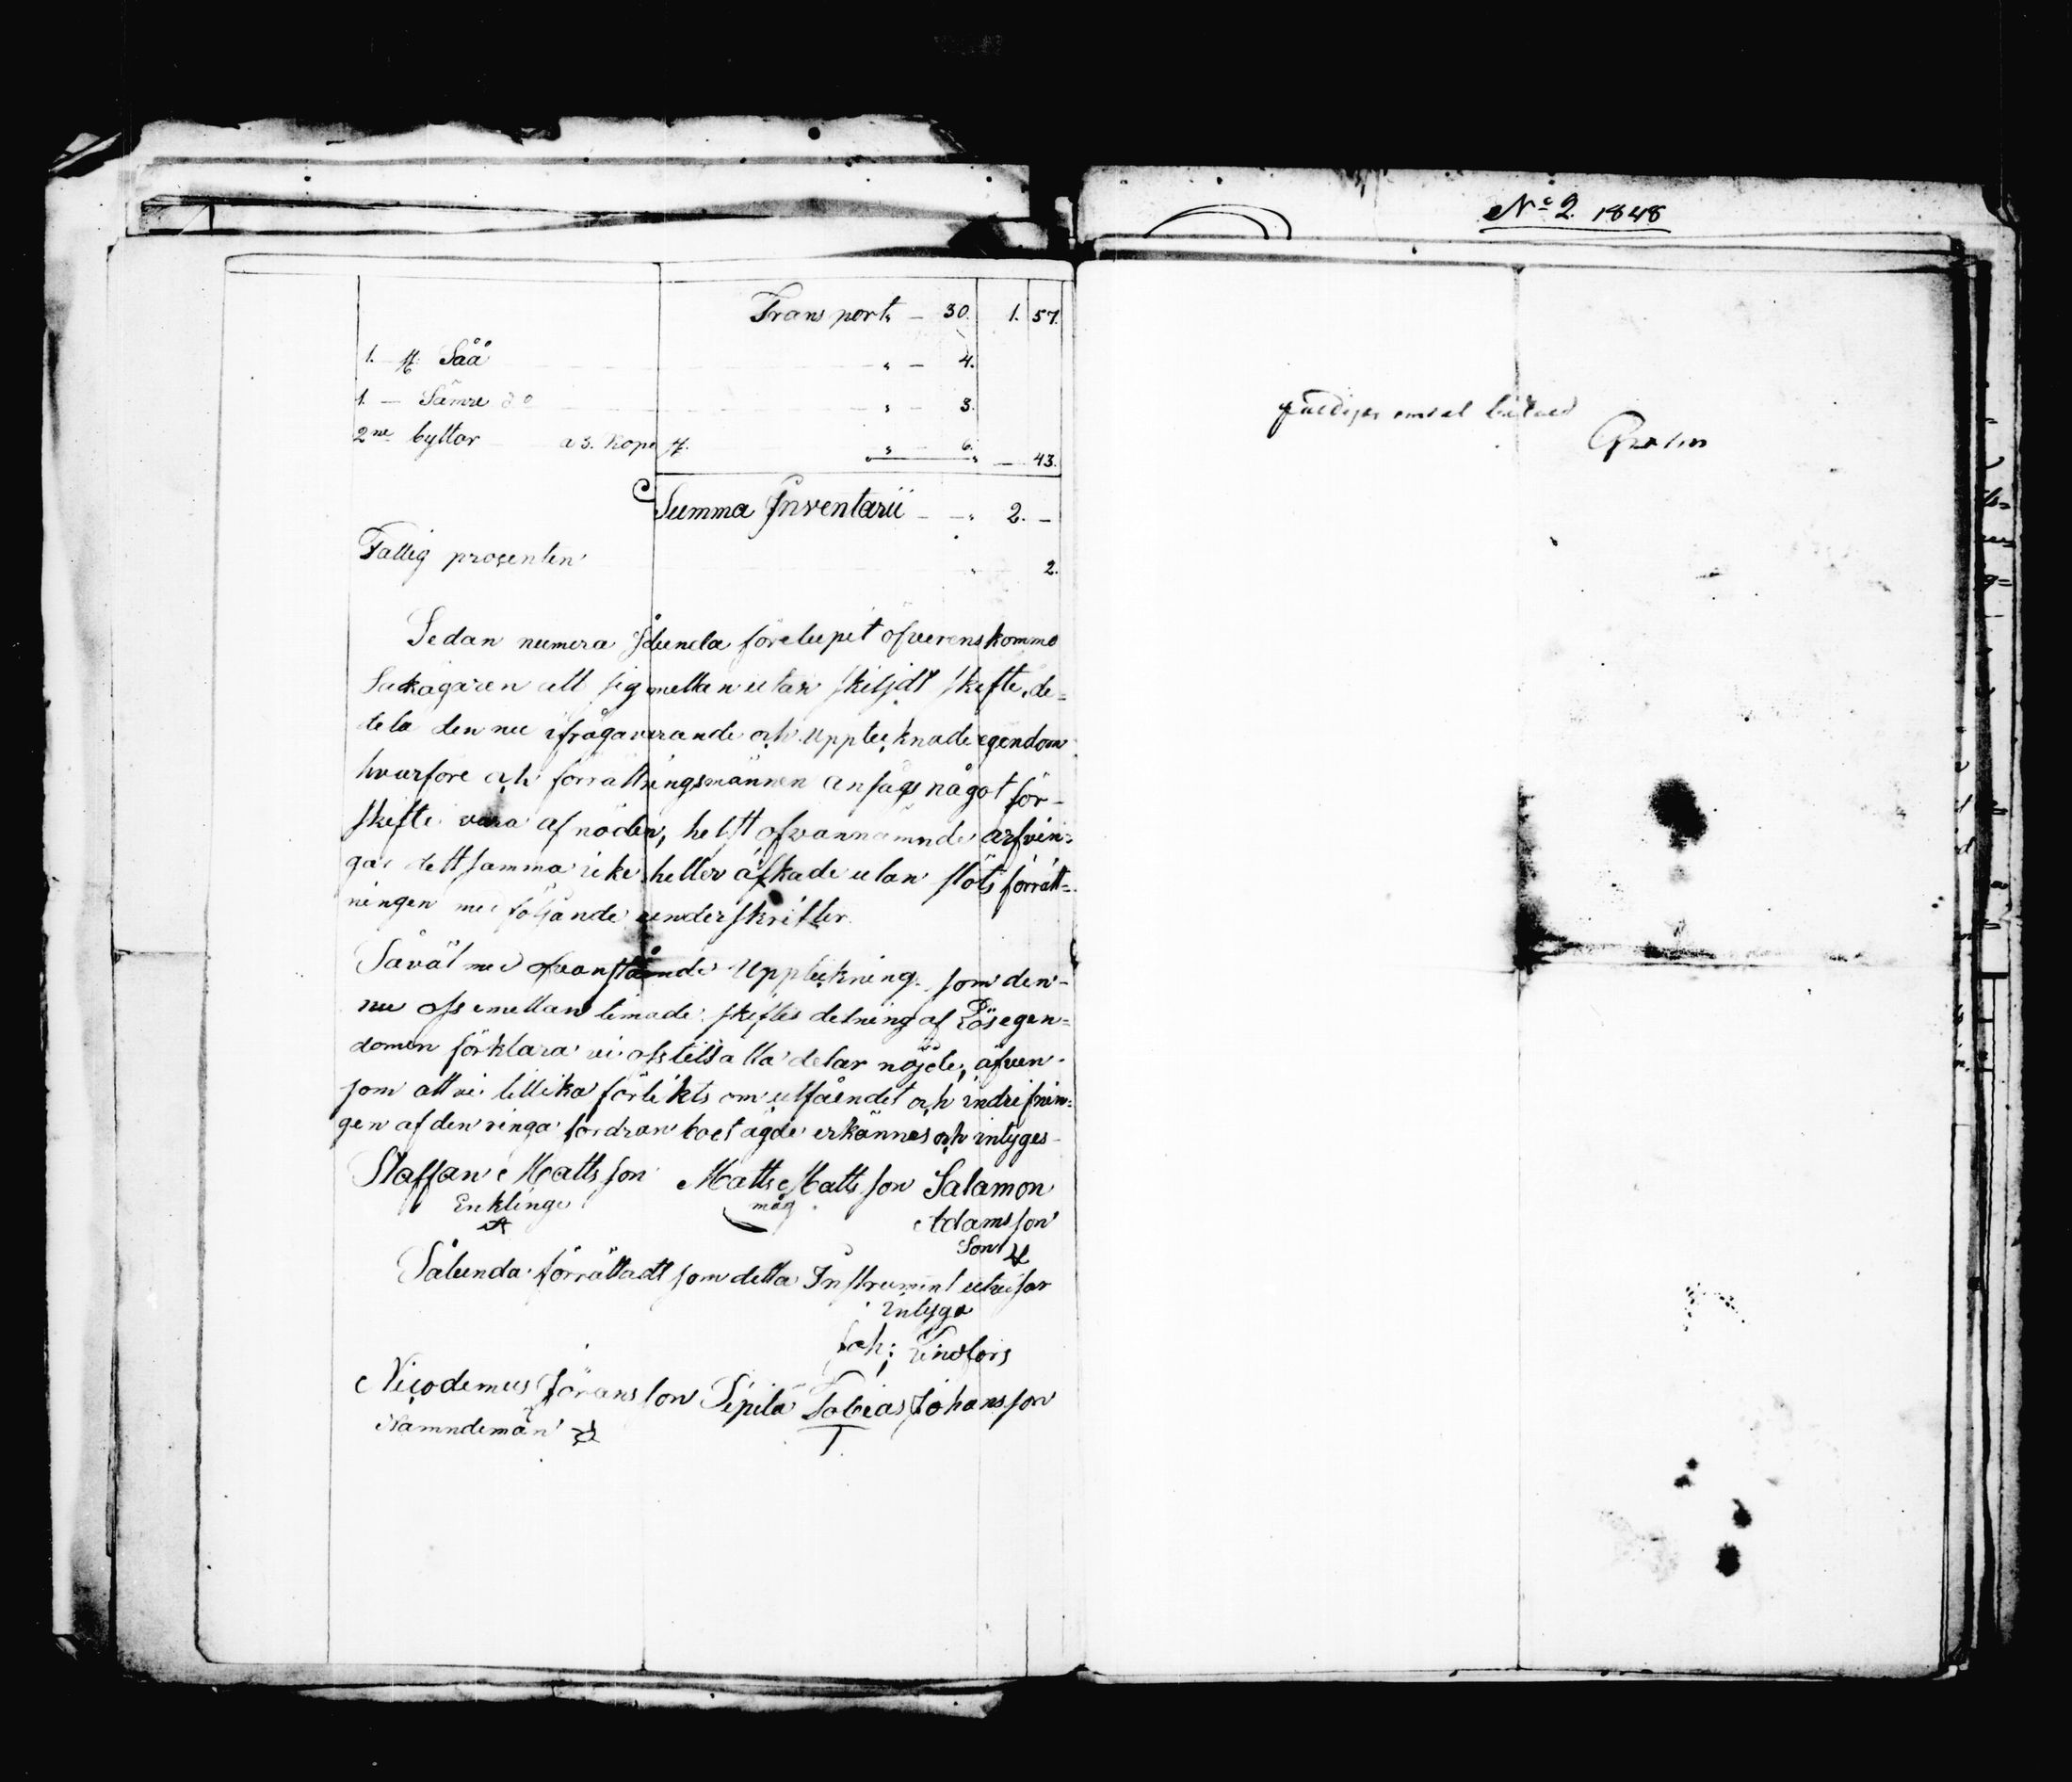 Transport. — 30. 1. 57.
1. — st. Såå " — 4.
1. — Sämre do " — 3.
2ne byttor a 3. kope st. " — 6. " — 43.
Summa Inventarii — — " 2. —
Fattig procenten " 2.
Sedan numera sålunda förelupit öfverenskommo
Sakägaren att sig mellan utan skiljdt skifte, de=
dela den nu ifrågavarande och uppteknade egendom
hvarföre och förrättningsmännen ansågs något för-
skifte vara af nöden, helst ofvannämnde arfvin=
gar dettsamma icke heller äskade utan slöts förrätt=
ningen med följande underskrifter.
Såväl med ofvanstående Uppteckning som den-
nu oss emellan timade skiftes delning af Lösegen=
domen förklara vi oss till alla delar nöjde, äfven-
som att vi tillika förlikts om utfåendet och indrifnin=
gen af den ringa fordran boet ägde erkännes och intyges
Staffan Mattsson Matts Mattsson Salamon
Enkling måg Adamsson
Son
Sålunda förrättadt som detta Instrument utvisar
intyga
Joh: Lindfors
Nicodemus Jöransson Sipilä Tobias Johansson
Nämndeman T
No 2. 1848